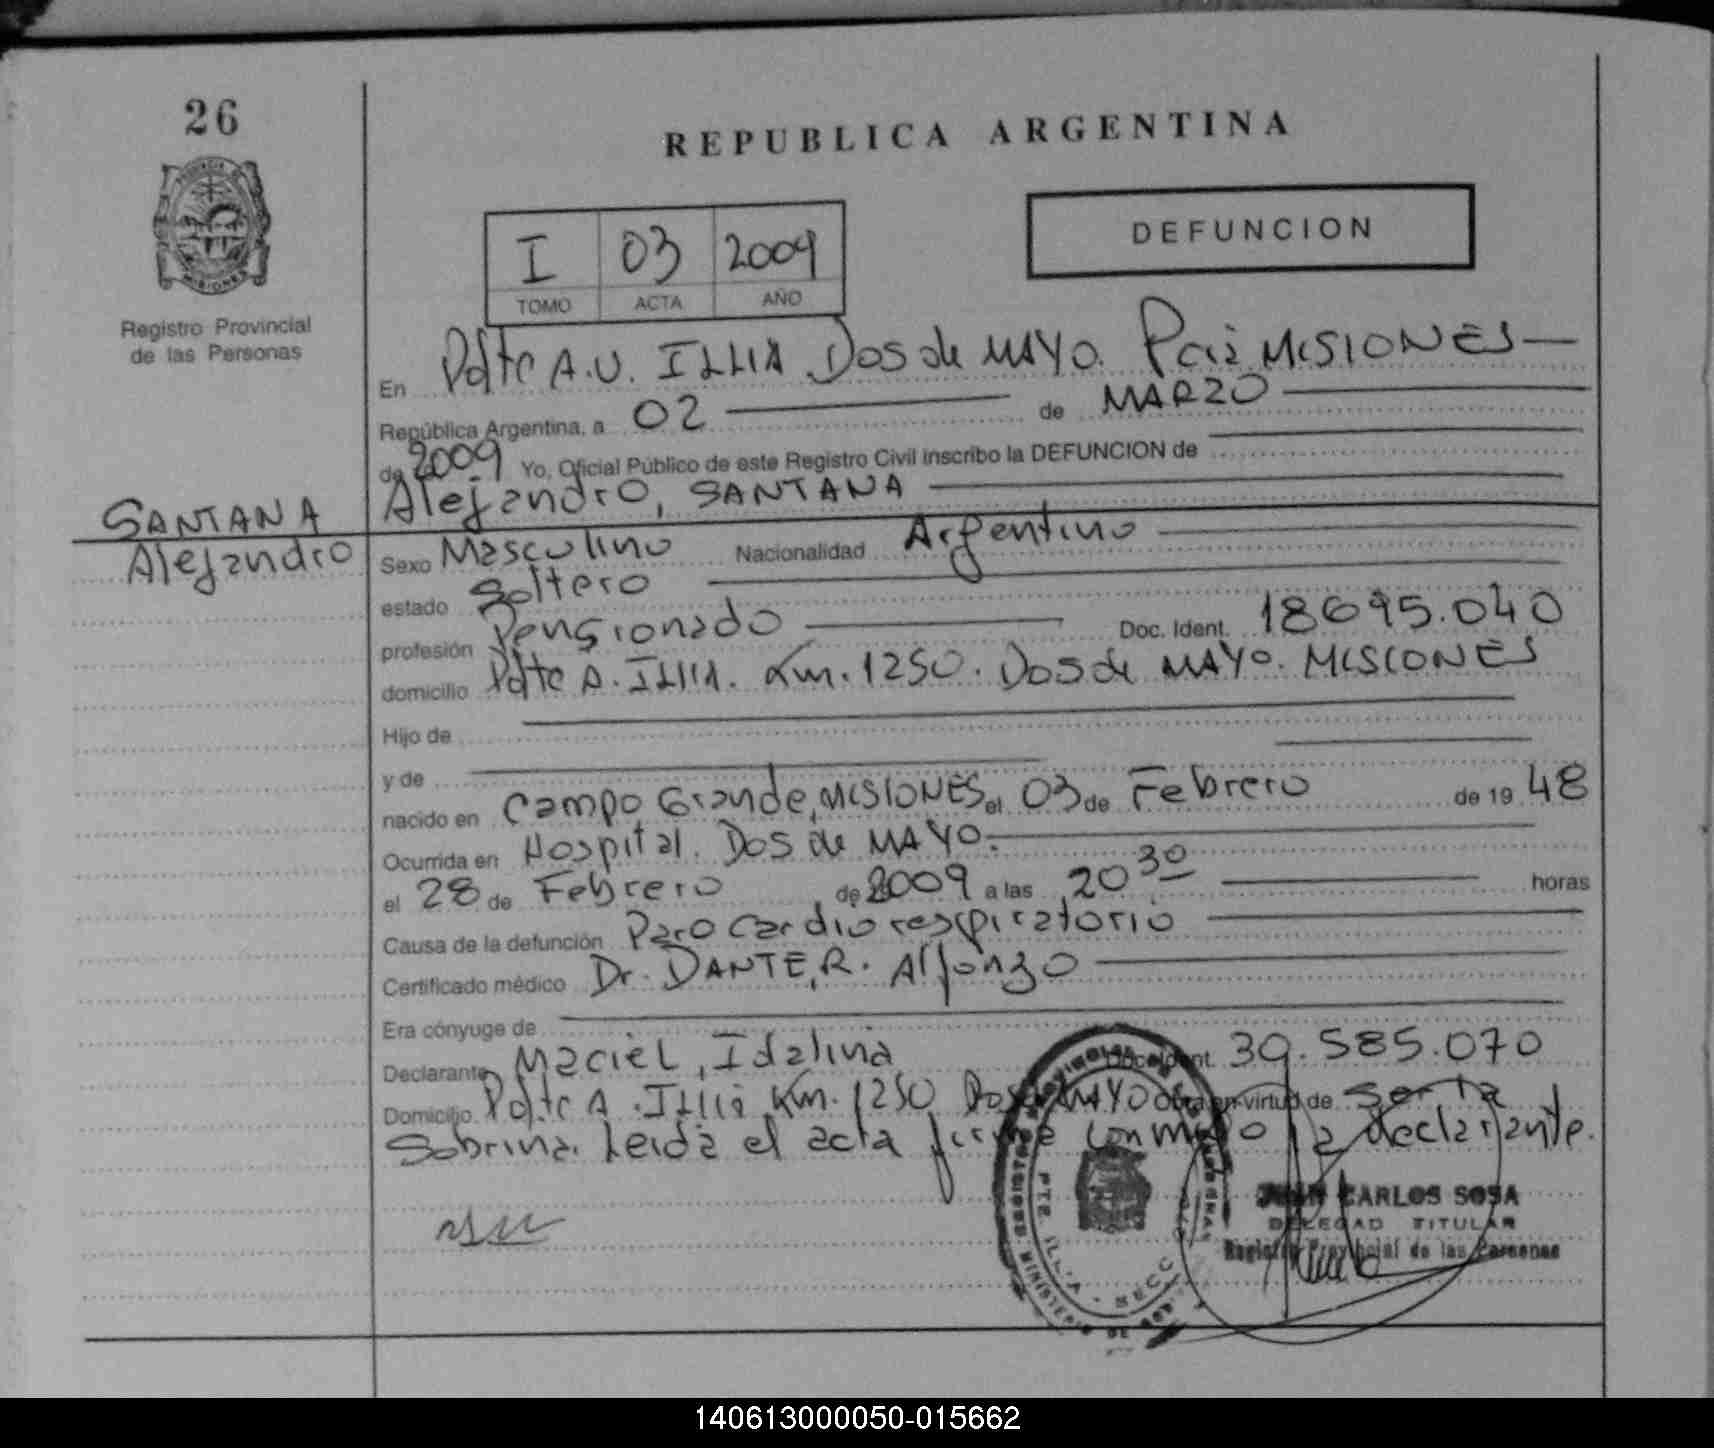 26
REPUBLICA ARGENTINA
I 03 2009
TOMO ACTA AÑO
DEFUNCION
Registro Provincial
de las Personas
En Pdte A.U. ILLIA Dos de MAYO. MISIONES
República Argentina, a 02 de MARZO
de 2009 Yo, Oficial Público de este Registro Civil inscribo la DEFUNCION de
Alejandro, SANTANA
SANTANA
Alejandro
Sexo Masculino Nacionalidad Argentino
estado Soltero
profesión Pensionado Doc. Ident. 18695.040
domicilio Pdte A. Illia. Km. 1250. Dos de MAYO. MISIONES
Hijo de
y de
nacido en Campo Grande, MISIONES el 03 de Febrero de 19 48
Ocurrida en Hospital. Dos de MAYO.
el 28 de Febrero de 2009 a las 20 30 horas
Causa de la defunción Paro cardiorespiratorio
Certificado médico Dr. DANTE, R. Alfonzo
Era cónyuge de
Declarante Maciel, Idalina Doc. Ident. 39.585.070
Domicilio Pdte A. Illia Km. 1250 Dos de MAYO Obra en virtud de ser la
Sobrina. Leida el acta firma conmigo la declarante.
JUAN CARLOS SOSA
DELEGAD TITULAR
Registro Provincial de las Personas
140613000050-015662